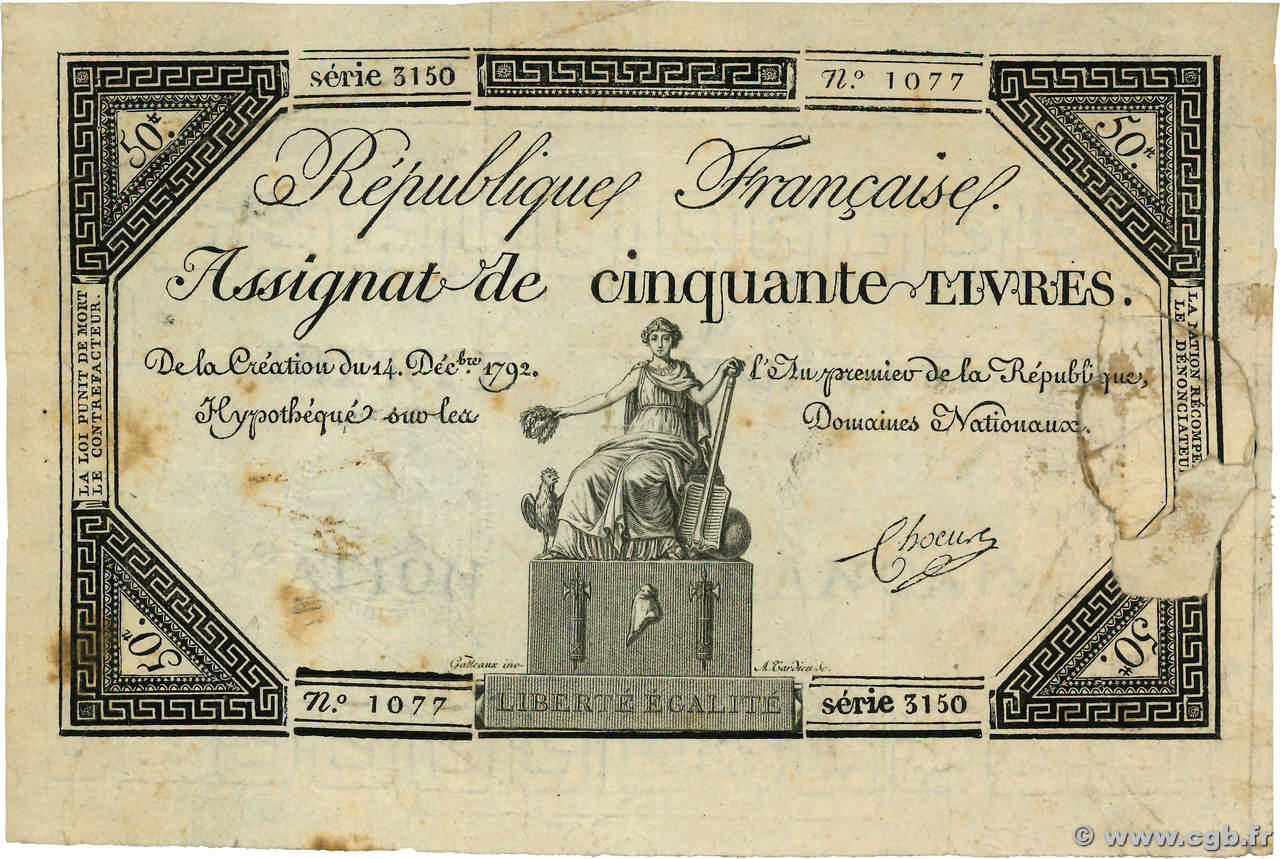 série 3150
N.o 1077
50 tt.
50. tt
République Française.
Assignat de cinquante LIVRES.
De la Création du 14. Déc.bre 1792.
l'An premier de la République,
Hypothéqué sur les
Domaines Nationaux.
LA LOI PUNIT DE MORT
LE CONTREFACTEUR.
LA NATION RÉCOMPE
LE DÉNONCIATEU
Gatteaux inv.
A. Tardieu Sc.
50. tt
50. tt
N.o 1077
LIBERTÉ ÉGALITÉ
série 3150
© www.cgb.fr